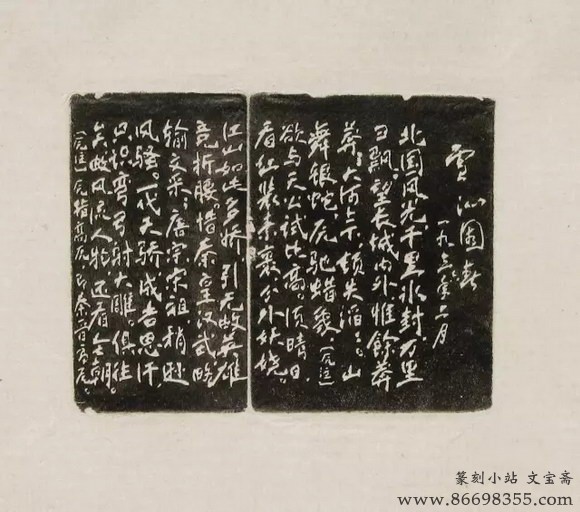 雪 沁园春
一九三六年二月
北国风光，千里冰封，万里
雪飘。望长城内外，惟餘莽
莽；大河上下，顿失滔滔。山
舞银蛇，原驰蜡象，（原注）
欲与天公试比高。须晴日，
看红装素裹，分外妖娆。
江山如此多娇，引无数英雄
竞折腰。惜秦皇汉武，略
输文采；唐宗宋祖，稍逊
风骚。一代天骄，成吉思汗，
只识弯弓射大雕。俱往
矣，数风流人物，还看今朝。
（原注）原指高原，即秦晋高原。
篆刻小站 文宝斋
www.86698355.com